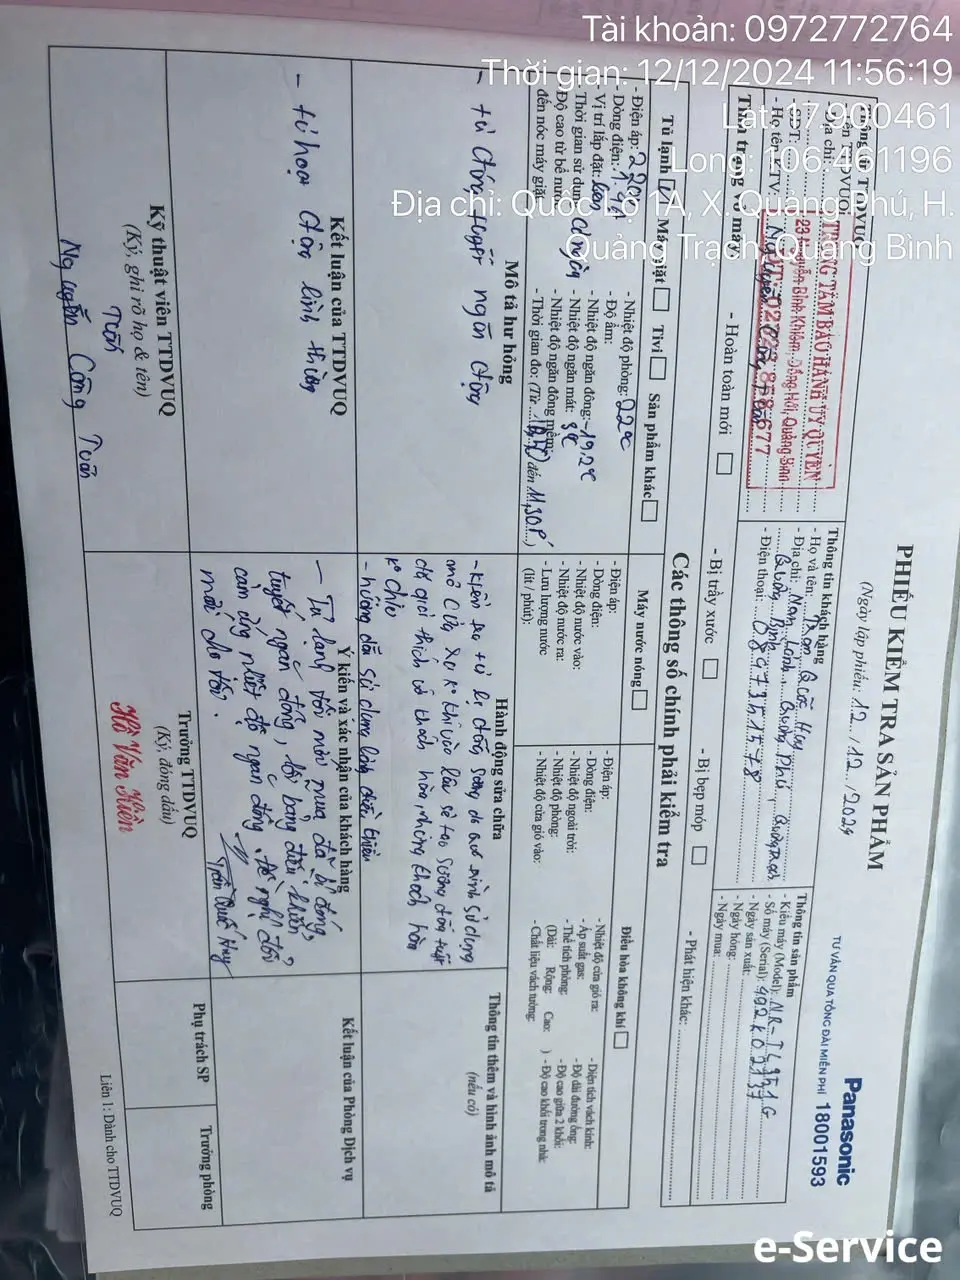 Tài khoản: 0972772764
Thời gian: 12/12/2024 11:56:19
Lat: 17.900461
Long: 106.461196
Địa chỉ: Quốc Lộ 1A, X. Quảng Phú, H.
Quảng Trạch, Quảng Bình
Panasonic
TƯ VẤN QUA TỔNG ĐÀI MIỄN PHÍ 18001593
PHIẾU KIỂM TRA SẢN PHẨM
(Ngày lập phiếu: 12 / 12 / 2024
Thông tin TTDVUQ
Tên TTDVUQ:
Địa chỉ:
SĐT:
- Họ tên KTV: Nguyễn Công Tuấn
TRUNG TÂM BẢO HÀNH ỦY QUYỀN
23 Nguyễn Bỉnh Khiêm, Đồng Hới, Quảng Bình
ĐT: 02023.858.677
Thông tin khách hàng
- Họ và tên: Trần Quốc Huy
- Địa chỉ: Nam Lãnh, Quảng Phú, Quảng Trạch
Quảng Bình
- Điện thoại: 0897351578
Thông tin sản phẩm
- Kiểu máy (Model): NR-TL351G
- Số máy (Serial): 492K02137
- Ngày sản xuất:
- Ngày hỏng:
- Ngày mua:
Tình trạng vỏ máy:
- Hoàn toàn mới
- Bị trầy xước
- Bị bẹp móp
- Phát hiện khác:
Các thông số chính phải kiểm tra
Tủ lạnh
Máy giặt
Tivi
Sản phẩm khác
Máy nước nóng
Điều hòa không khí
- Điện áp: 220V
- Dòng điện:
- Vị trí lắp đặt:
- Thời gian sử dụng
- Độ cao từ bể nước
đến nóc máy giặt:
- Nhiệt độ phòng: 22°C
- Độ ẩm:
- Nhiệt độ ngăn đông: -19,2°C
- Nhiệt độ ngăn mát: 3°C
- Nhiệt độ ngăn đông mềm:
- Thời gian đo: (Từ 11H đến 11,30P)
- Điện áp:
- Dòng điện:
- Nhiệt độ nước vào:
- Nhiệt độ nước ra:
- Lưu lượng nước
(lít/ phút):
- Điện áp:
- Dòng điện:
- Nhiệt độ ngoài trời:
- Nhiệt độ phòng:
- Nhiệt độ cửa gió vào:
- Nhiệt độ cửa gió ra:
- Áp suất gas:
- Thể tích phòng:
(Dài: Rộng: Cao: )
- Chất liệu vách tường:
- Diện tích vách kính:
- Độ dài đường ống:
- Độ cao giữa 2 khối:
- Độ cao khối trong nhà:
Mô tả hư hỏng
- tủ đóng tuyết ngăn đông
Hành động sửa chữa
- kiểm tra tủ bị đóng sương do quá trình sử dụng
mở cửa
đã giải thích về khách hàng nhưng khách hàng
ko chịu
- hướng dẫn sử dụng
Thông tin thêm và hình ảnh mô tả
(nếu có)
Kết luận của TTDVUQ
- tủ hoạt động bình thường
Ý kiến và xác nhận của khách hàng
- Tủ lạnh vừa mới mua đã bị đóng
tuyết ngăn đông, lỗi bảng điều khiển,
cảm ứng nhiệt độ ngăn đông. đề nghị đổi
mới do tôi.
Trần Quốc Huy
Kết luận của Phòng Dịch vụ
Kỹ thuật viên TTDVUQ
(Ký, ghi rõ họ & tên)
Tuấn
Nguyễn Công Tuấn
Trưởng TTDVUQ
(Ký, đóng dấu)
Hồ Văn Hiền
Phụ trách SP
Trưởng phòng
Liên 1: Dành cho TTDVUQ
e-Service